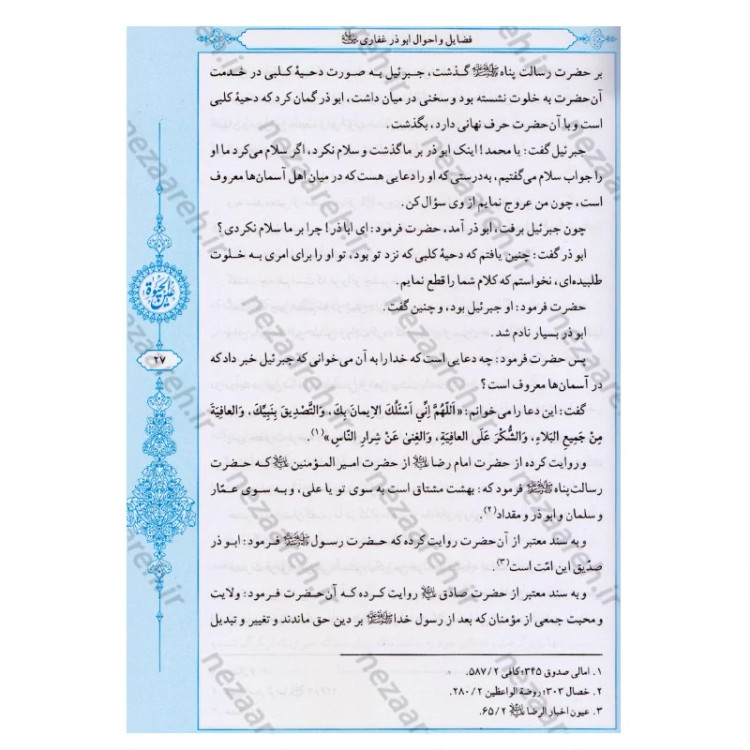 فضایل و احوال ابوذر غفاری
بر حضرت رسالت پناه ﷺ گذشت، جبرئیل به صورت دحیهٔ کلبی در خدمت
آن‌حضرت به خلوت نشسته بود و سخنی در میان داشت، ابوذر گمان کرد که دحیهٔ کلبی
است و با آن‌حضرت حرف نهانی دارد، بگذشت.
جبرئیل گفت: یا محمد! اینک ابوذر بر ما گذشت و سلام نکرد، اگر سلام می‌کرد ما او
را جواب سلام می‌گفتیم، به‌درستی که او را دعایی هست که در میان اهل آسمان‌ها معروف
است، چون من عروج نمایم از وی سؤال کن.
چون جبرئیل برفت، ابوذر آمد، حضرت فرمود: ای اباذر! چرا بر ما سلام نکردی؟
ابوذر گفت: چنین یافتم که دحیهٔ کلبی که نزد تو بود، تو او را برای امری به خلوت
طلبیده‌ای، نخواستم که کلام شما را قطع نمایم.
حضرت فرمود: او جبرئیل بود، و چنین گفت.
ابوذر بسیار نادم شد.
۲۷
پس حضرت فرمود: چه دعایی است که خدا را به آن می‌خوانی که جبرئیل خبر داد که
در آسمان‌ها معروف است؟
گفت: این دعا را می‌خوانم: «اَللّٰهُمَّ إِنِّي أَسْئَلُكَ الإِيمانَ بِكَ، وَالتَّصْدِيقَ بِنَبِيِّكَ، وَالعافِيَةَ
مِنْ جَمِيعِ البَلاءِ، وَالشُّكْرَ عَلَى العافِيَةِ، وَالغِنىٰ عَنْ شِرارِ النّاسِ»(۱).
و روایت کرده از حضرت امام رضا از حضرت امیرالمؤمنین که حضرت
رسالت‌پناه ﷺ فرمود که: بهشت مشتاق است به سوی تو یا علی، و به سوی عمّار
و سلمان و ابوذر و مقداد(۲).
و به سند معتبر از آن حضرت روایت کرده که حضرت رسول ﷺ فرمود: ابوذر
صدّیق این امّت است(۳).
و به سند معتبر از حضرت صادق روایت کرده که آن‌حضرت فرمود: ولایت
و محبت جمعی از مؤمنان که بعد از رسول خدا ﷺ بر دین حق ماندند و تغییر و تبدیل
۱. امالی صدوق ۳۴۵؛ کافی ۲ / ۵۸۷.
۲. خصال ۳۰۳؛ روضة الواعظین ۲ / ۲۸۰.
۳. عیون اخبار الرضا ۲ / ۶۵.
nezaareh.ir